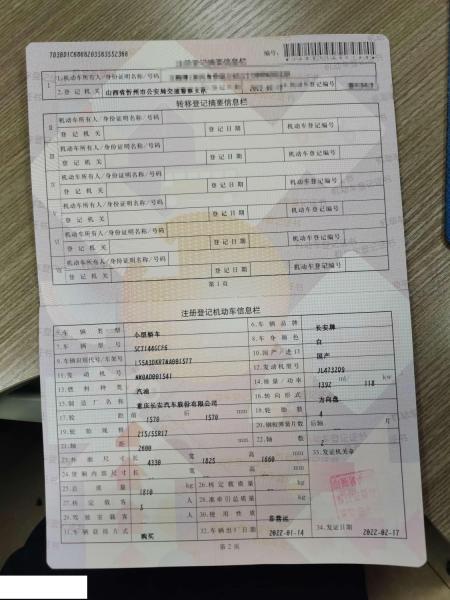 注册登记摘要信息栏
编号:
I 1.机动车所有人/身份证明名称/号码
2.登记机关 山西省忻州市公安局交通警察支队 机动车登记编号
转移登记摘要信息栏
II 机动车所有人/身份证明名称/号码
登记机关 登记日期 机动车登记编号
III 机动车所有人/身份证明名称/号码
登记机关 登记日期 机动车登记编号
IV 机动车所有人/身份证明名称/号码
登记机关 登记日期 机动车登记编号
V 机动车所有人/身份证明名称/号码
登记机关 登记日期 机动车登记编号
VI 机动车所有人/身份证明名称/号码
登记机关 登记日期 机动车登记编号
VII 机动车所有人/身份证明名称/号码
登记机关 登记日期 机动车登记编号
第1页
注册登记机动车信息栏
5.车辆类型 小型轿车 6.车辆品牌 长安牌
7.车辆型号 8.车身颜色 白
9.车辆识别代号/车架号 10.国产/进口 国产
11.发动机号 12.发动机型号 JL473ZQ9
13.燃料种类 汽油 14.排量/功率 ml 118 kW
15.制造厂名称 重庆长安汽车股份有限公司 16.转向形式 方向盘
17.轮距 前 1570 后 1570 mm 18.轮胎数 4
19.轮胎规格 215/55R17 20.钢板弹簧片数 后轴 片
21.轴距 2600 mm 22.轴数 2
23.外廓尺寸 长 4330 宽 1825 高 1660 mm 33.发证机关章
24.货厢内部尺寸 长 宽 高 mm
25.总质量 1810 kg 26.核定载质量 kg
27.核定载客 5 人 28.准牵引总质量 kg
29.驾驶室载客 人 30.使用性质 非营运
31.车辆获得方式 购买 32.车辆出厂日期 2022-01-14 34.发证日期 2022-02-17
第2页